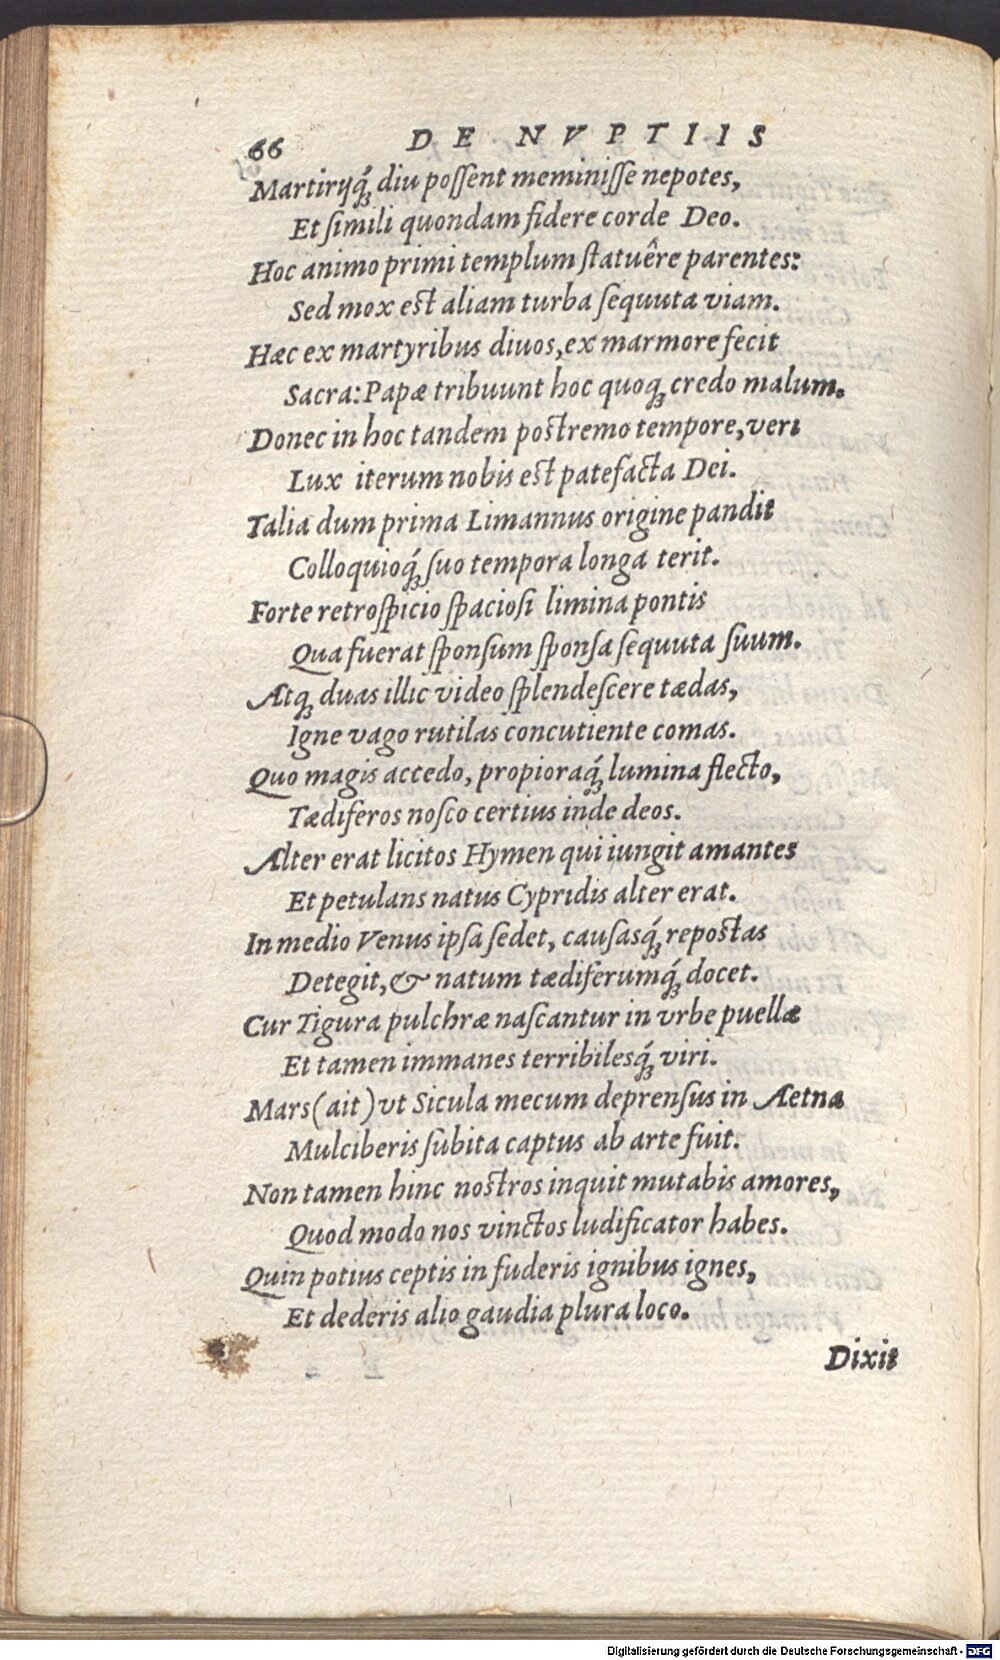 66 DE NVPTIIS
Martirijq́ꝫ diu poſſent meminiſſe nepotes,
Et ſimili quondam fidere corde Deo.
Hoc animo primi templum ſtatuêre parentes:
Sed mox eſt aliam turba ſequuta viam.
Hæc ex martyribus diuos, ex marmore fecit
Sacra: Papæ tribuunt hoc quoqꝫ credo malum.
Donec in hoc tandem poſtremo tempore, veri
Lux iterum nobis eſt patefacta Dei.
Talia dum prima Limannus origine pandit
Colloquioq́ꝫ ſuo tempora longa terit.
Forte retroſpicio ſpacioſi limina pontis
Qua fuerat ſponſum ſponſa ſequuta ſuum.
Atqꝫ duas illic video ſplendeſcere tædas,
Igne vago rutilas concutiente comas.
Quo magis accedo, propioraq́ꝫ lumina flecto,
Tædiferos noſco certius inde deos.
Alter erat licitos Hymen qui iungit amantes
Et petulans natus Cypridis alter erat.
In medio Venus ipſa ſedet, cauſasq́ꝫ repoſtas
Detegit, & natum tædiferumq́ꝫ docet.
Cur Tigura pulchræ naſcantur in vrbe puellæ
Et tamen immanes terribilesq́ꝫ viri.
Mars (ait) vt Sicula mecum deprenſus in Aetna
Mulciberis ſubita captus ab arte fuit.
Non tamen hinc noſtros inquit mutabis amores,
Quod modo nos vinctos ludificator habes.
Quin potius ceptis in fuderis ignibus ignes,
Et dederis alio gaudia plura loco.
Dixit
Digitalisierung gefördert durch die Deutsche Forschungsgemeinschaft - DFG